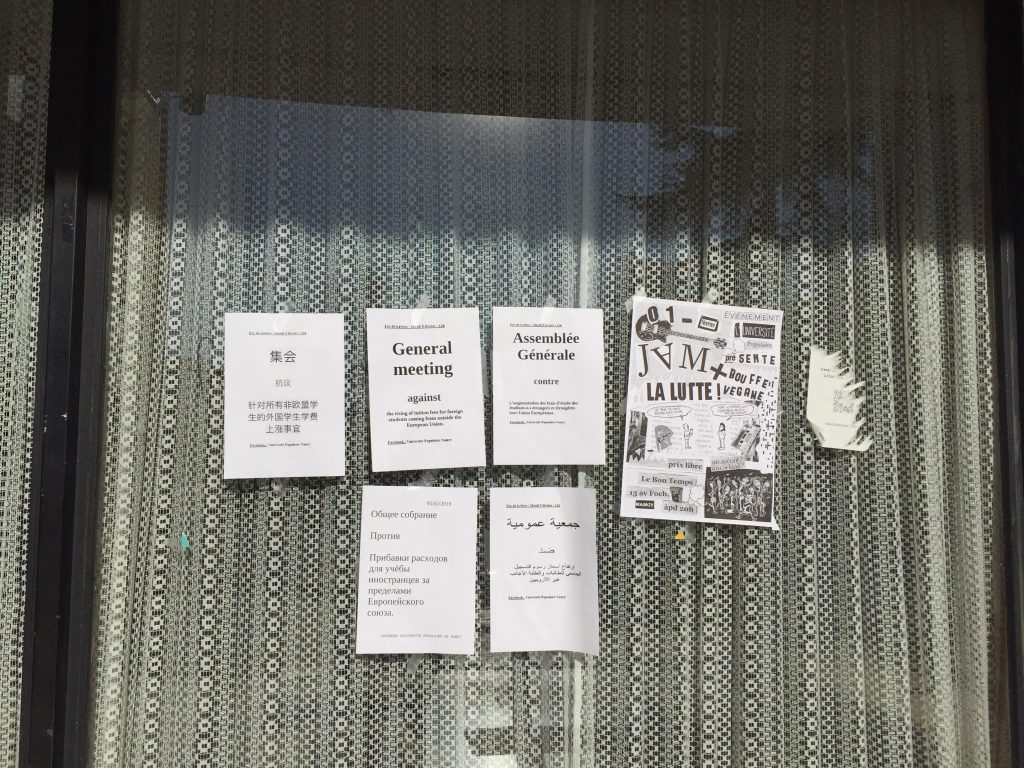 Fac de Lettres - Mardi 5 février - 12h
集会
抗议
针对所有非欧盟学
生的外国学生学费
上涨事宜
Facebook : Université Populaire Nancy
Fac de Lettres - Mardi 5 février - 12h
General
meeting
against
the rising of tuition fees for foreign
students coming from outside the
European Union.
Facebook : Université Populaire Nancy
Fac de Lettres - Mardi 5 février - 12h
Assemblée
Générale
contre
L'augmentation des frais d'étude des
étudiant-e-s étrangers et étrangères
hors Union Européenne.
Facebook : Université Populaire Nancy
05/02/2019
Общее собрание
Против
Прибавки расходов
для учёбы
иностранцев за
пределами
Европейского
союза.
FACEBOOK UNIVERSITE POPULAIRE DE NANCY
Fac de Lettres - Mardi 5 février - 12h
جمعية عمومية
ضد
إرتفاع أسعار رسوم التسجيل
الجامعي للطالبات والطلبة الأجانب
غير الأروبيين
Facebook : Université Populaire Nancy
ÉVÉNEMENT
01-
février
UNIVERSITÉ
Populaire
pré SENTE
JAM
+ BOUFFE
VEGANE
LA LUTTE !
prix libre
Le Bon Temps
13 av Foch,
NANCY
apd 20h